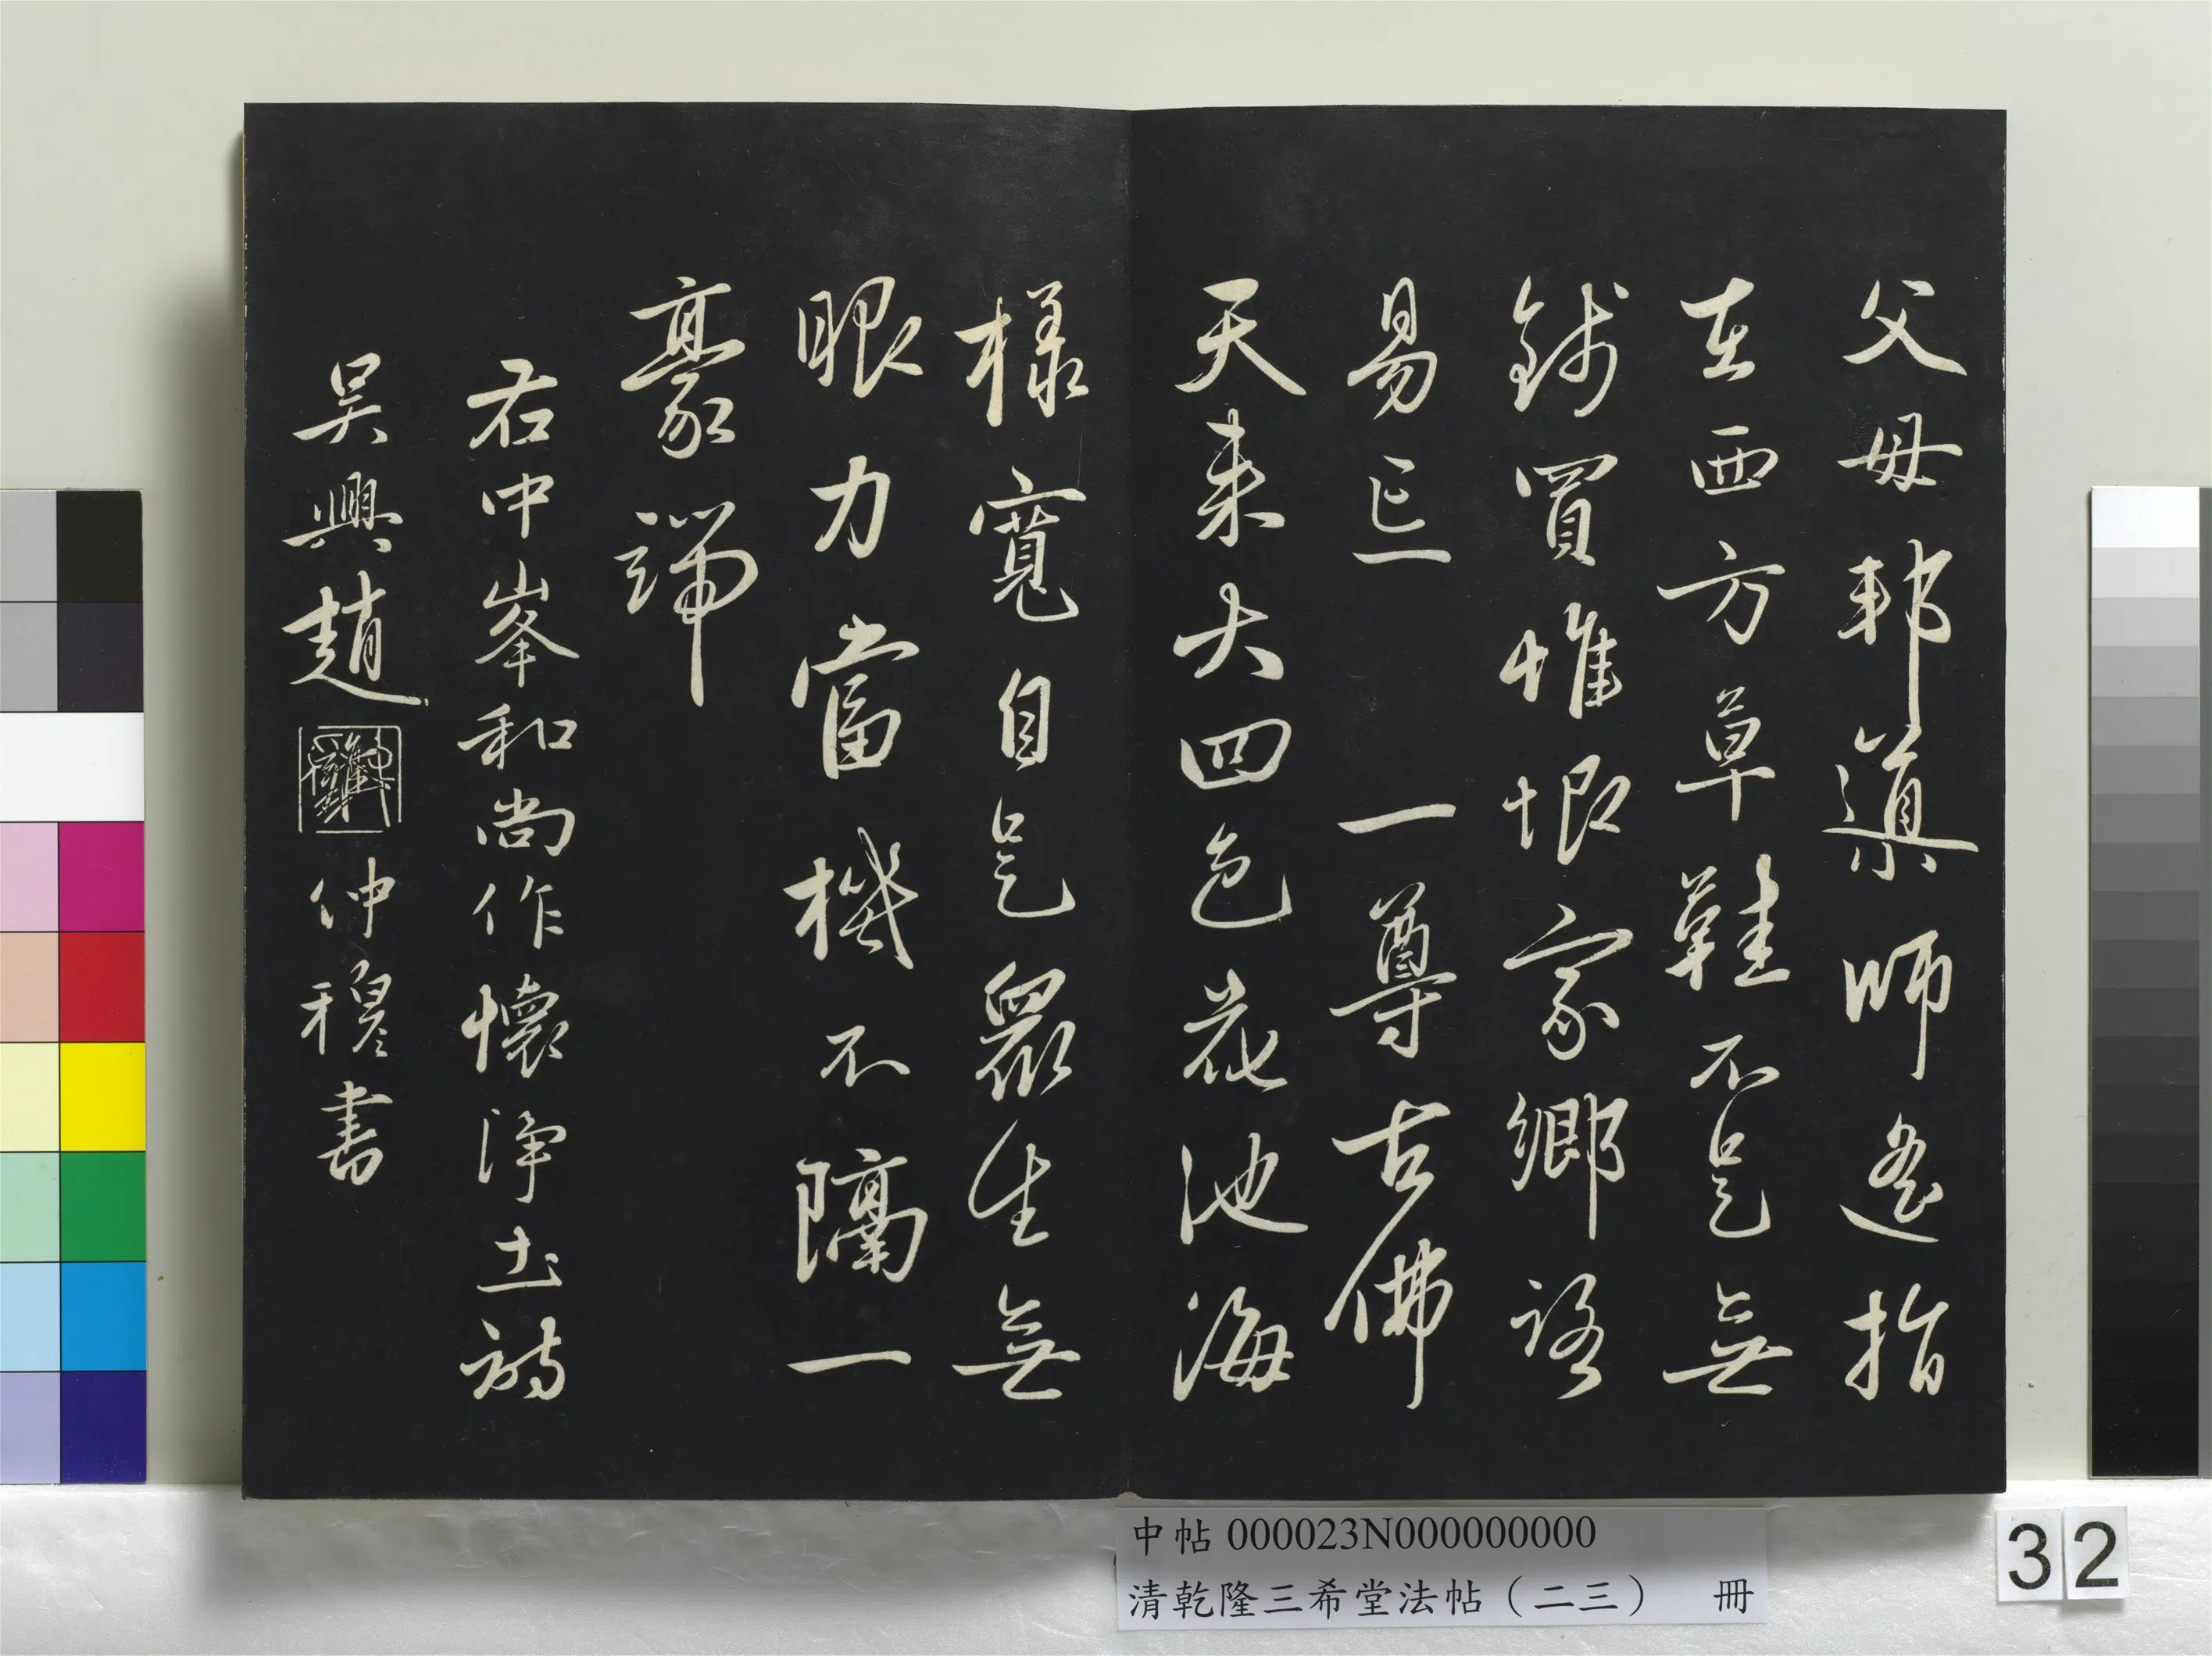 父母邦導師遙指
在西方草鞋不是無
錢買惟恨家鄉路
易忘　一尊古佛
天來大四色花池海
樣寬自是眾生無
眼力當機不隔一
豪端
右中峯和尚作懷淨土詩
吳興趙仲穆書
中帖 000023N000000000
清乾隆三希堂法帖（二三）　冊
32